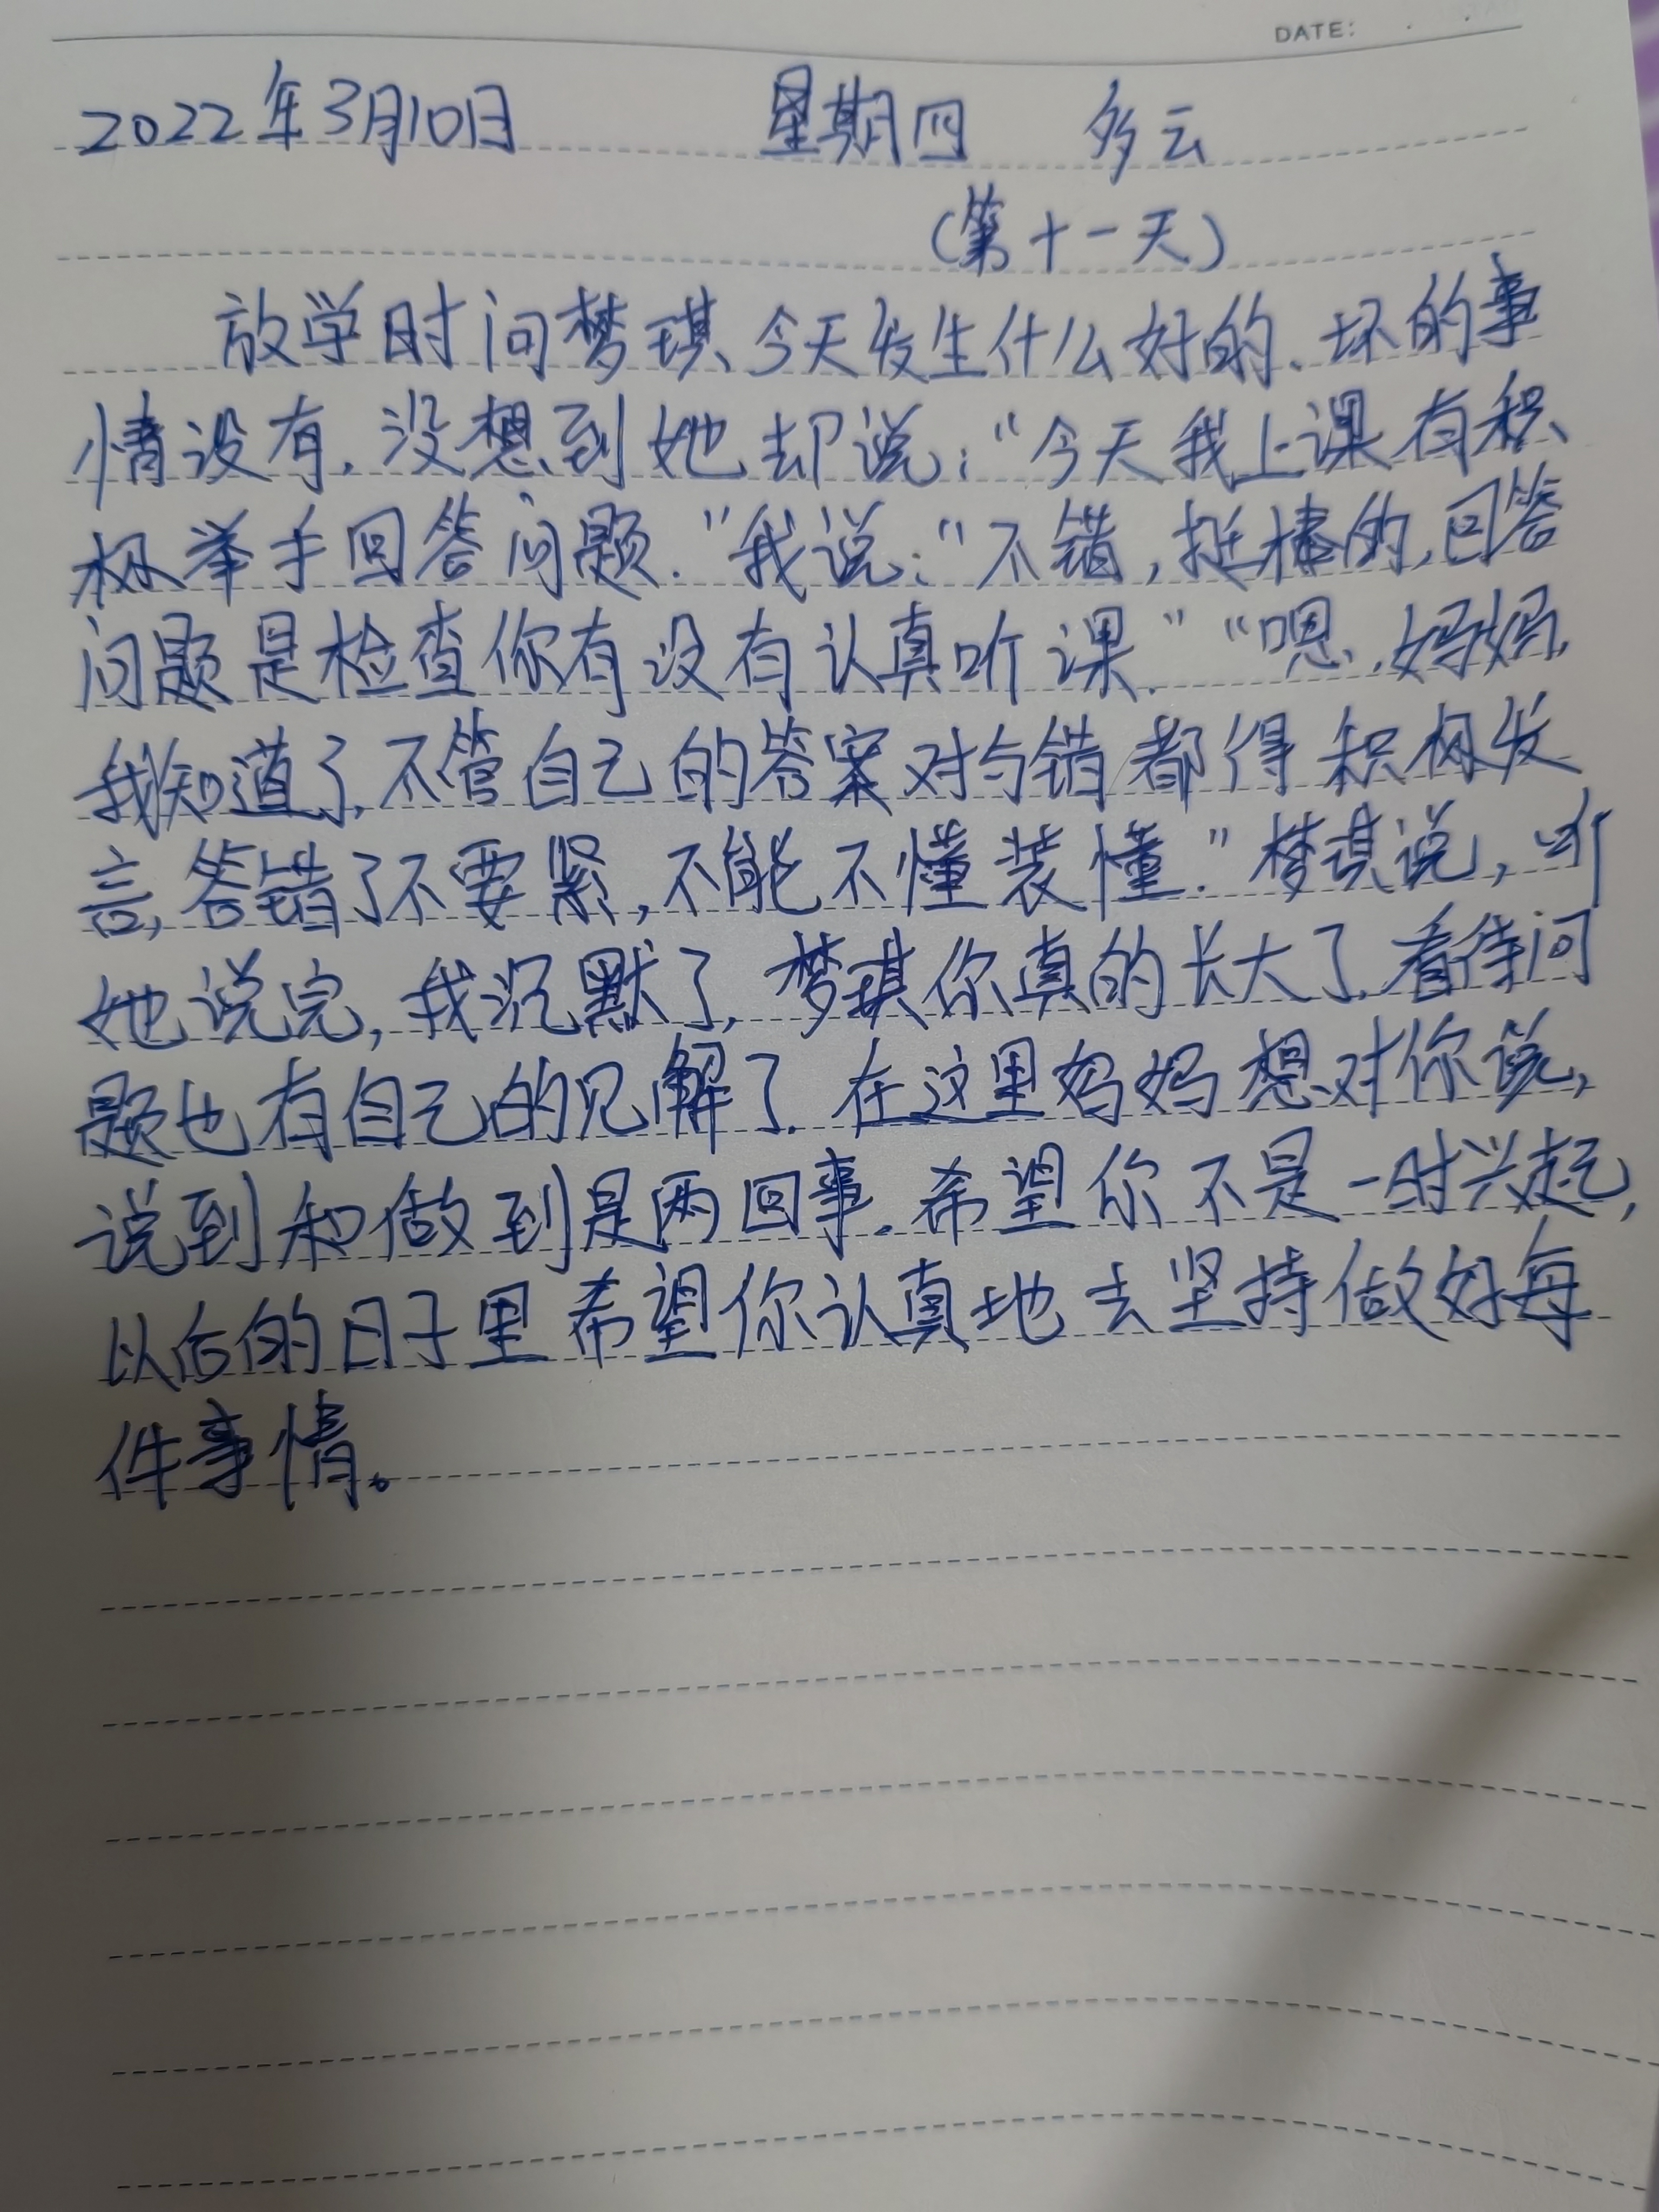 DATE: . .
2022年3月10日 星期四 多云
(第十一天)
放学时问梦琪、今天发生什么好的、坏的事
情没有.没想到她却说:“今天我上课有积
极举手回答问题.”我说:“不错,挺棒的,回答
问题是检查你有没有认真听课.”“嗯,妈妈,
我知道了,不管自己的答案对与错都得积极发
言,答错了不要紧,不能不懂装懂.”梦琪说,听
她说完,我沉默了,梦琪你真的长大了.看待问
题也有自己的见解了.在这里妈妈想对你说,
说到和做到是两回事.希望你不是一时兴起,
以后的日子里希望你认真地去坚持做好每
件事情。